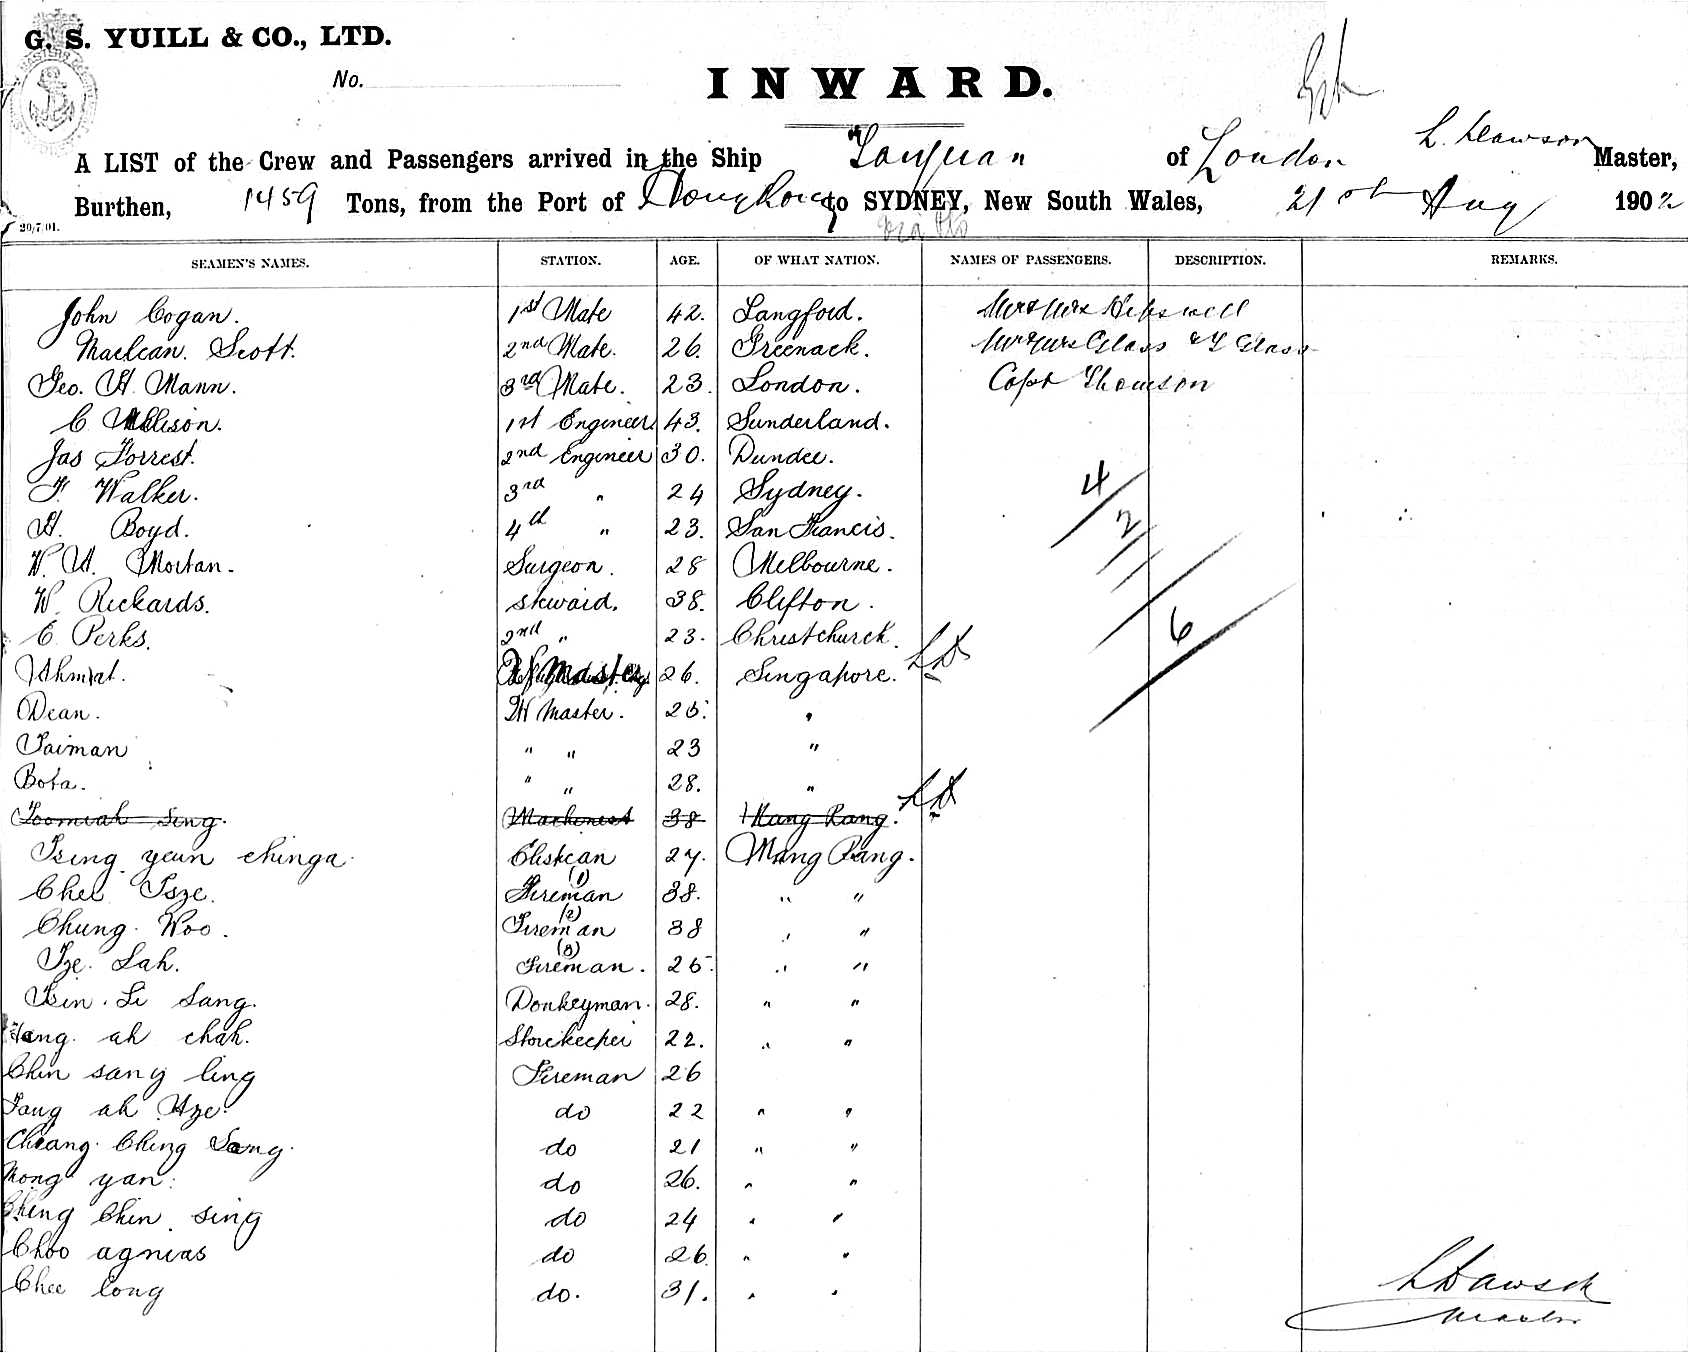 G. S. YUILL & CO., LTD.
No.
INWARD.
A LIST of the Crew and Passengers arrived in the Ship Taiyuan of London L. Dawson Master,
Burthen, 1459 Tons, from the Port of Hong Kong to SYDNEY, New South Wales, 21st Aug 1902
20/7/01.
SEAMEN'S NAMES. STATION. AGE. OF WHAT NATION. NAMES OF PASSENGERS. DESCRIPTION. REMARKS.
John Cogan. 1st Mate 42. Langford. Mr & Mrs
Maclean. Scott. 2nd Mate. 26. Greenack. Mr & Mrs Glass & Glass
Geo. H. Mann. 3rd Mate. 23. London. Capt Thomson
C. Allison. 1st Engineer 43. Sunderland.
Jas Forrest. 2nd Engineer 30. Dundee.
F. Walker. 3rd " 24 Sydney. 4
H. Boyd. 4th " 23. San Francis. 2
W. H. Mortan. Surgeon. 28 Melbourne.
W. Rickards. Steward. 38. Clifton.
C. Perks. 2nd " 23. Christchurch. 6
Ahmat. Master 26. Singapore. LD
Dean. Master. 25. "
Saiman " " 23 "
Bota. " " 28. "
Toomiah Sing. Machinest 38 Hang Kang. LD
Tsing yeun chinga. 27. Hang Kang.
Chee Tsze. Fireman (1) 38. " "
Chung. Woo. Fireman (2) 38 " "
Tze. Lah. Fireman (3). 25. " "
Tsin. Li Sang. Donkeyman. 28. " "
ah chah. Storekeeper 22. " "
Chin sang ling Fireman 26
Tang ah Tze. do 22 " "
Cheang. Ching Sang. do 21 " "
Mong yan. do 26. " "
Ching Chin sing do 24 " "
Choo agnias do 26. " "
Chee long do. 31. " "
L Dawson
Master